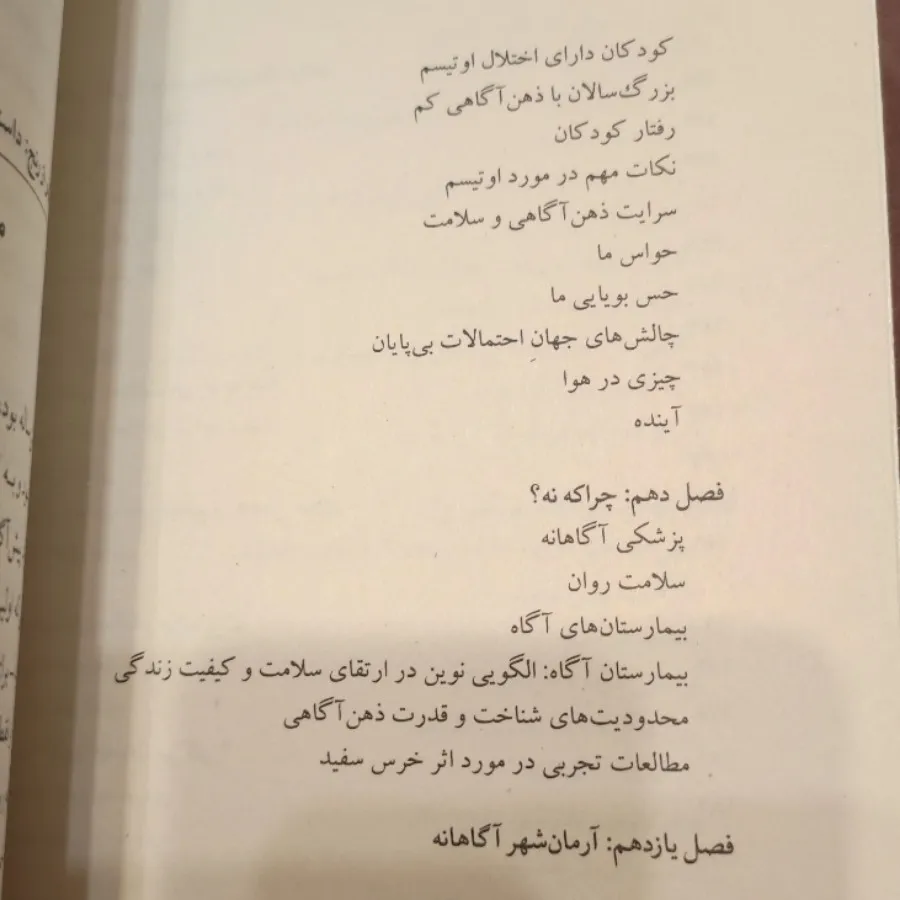 کودکان دارای اختلال اوتیسم
بزرگ‌سالان با ذهن‌آگاهی کم
رفتار کودکان
نکات مهم در مورد اوتیسم
سرایت ذهن‌آگاهی و سلامت
حواس ما
حس بویایی ما
چالش‌های جهانِ احتمالات بی‌پایان
چیزی در هوا
آینده
فصل دهم: چراکه نه؟
پزشکی آگاهانه
سلامت روان
بیمارستان‌های آگاه
بیمارستان آگاه: الگویی نوین در ارتقای سلامت و کیفیت زندگی
محدودیت‌های شناخت و قدرت ذهن‌آگاهی
مطالعات تجربی در مورد اثر خرس سفید
فصل یازدهم: آرمان‌شهر آگاهانه